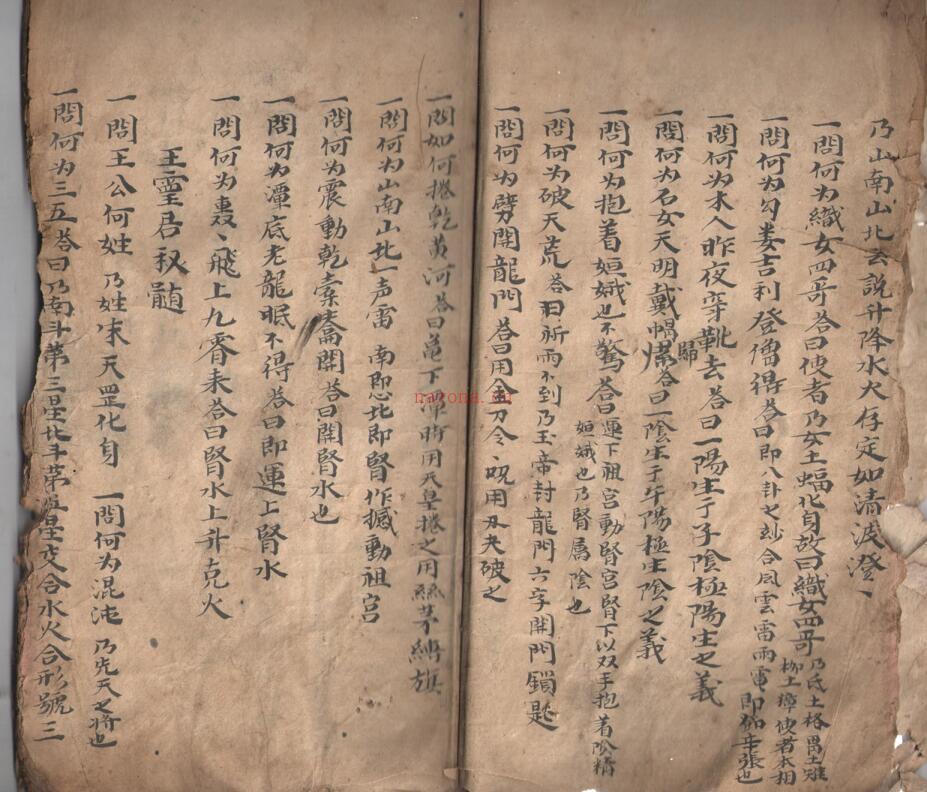 乃山南山北去説升降水火存定如清波澄一
一問何为織女四哥答曰使者乃女土蝠化身故曰織女四哥乃氐土格胃土雉
柳土璋使者本相
一問何为勾娄吉利登僧得答曰即八卦之玅合風雲雷雨電即
辛張也
一問何为木人昨夜穿靴去答曰一陽生于子陰極陽生之義
一問何为石女天明戴帽歸答曰一陰生于午陽極生陰之義
一問何为抱着姮娥也不驚答曰運下祖宫動腎宫腎下以双手抱着陰精
姮娥也乃腎属陰也
一問何为破天荒答曰祈雨不到乃玉帝封龍門六字開門鎖匙
一問何为劈開龍門答曰用金刀令、呪用
夬破之
一問如何捲乾黄河答曰
下
用天皇捲之用
茅縛旗
一問何为山南山北一声雷 南即心北即腎作撼動祖宫
一問何为震動乾
崙開答曰開腎水也
一問何为潭底老龍眠不得答曰即運上腎水
一問何为轟、飛上九霄来答曰腎水上升克火
王靈君祕髄
一問王公何姓 乃姓宋天罡化身 一問何为混沌 乃先天之将也
一問何为三五答曰乃南斗第三星北斗第五星交合水火合形號三
nayona.cn